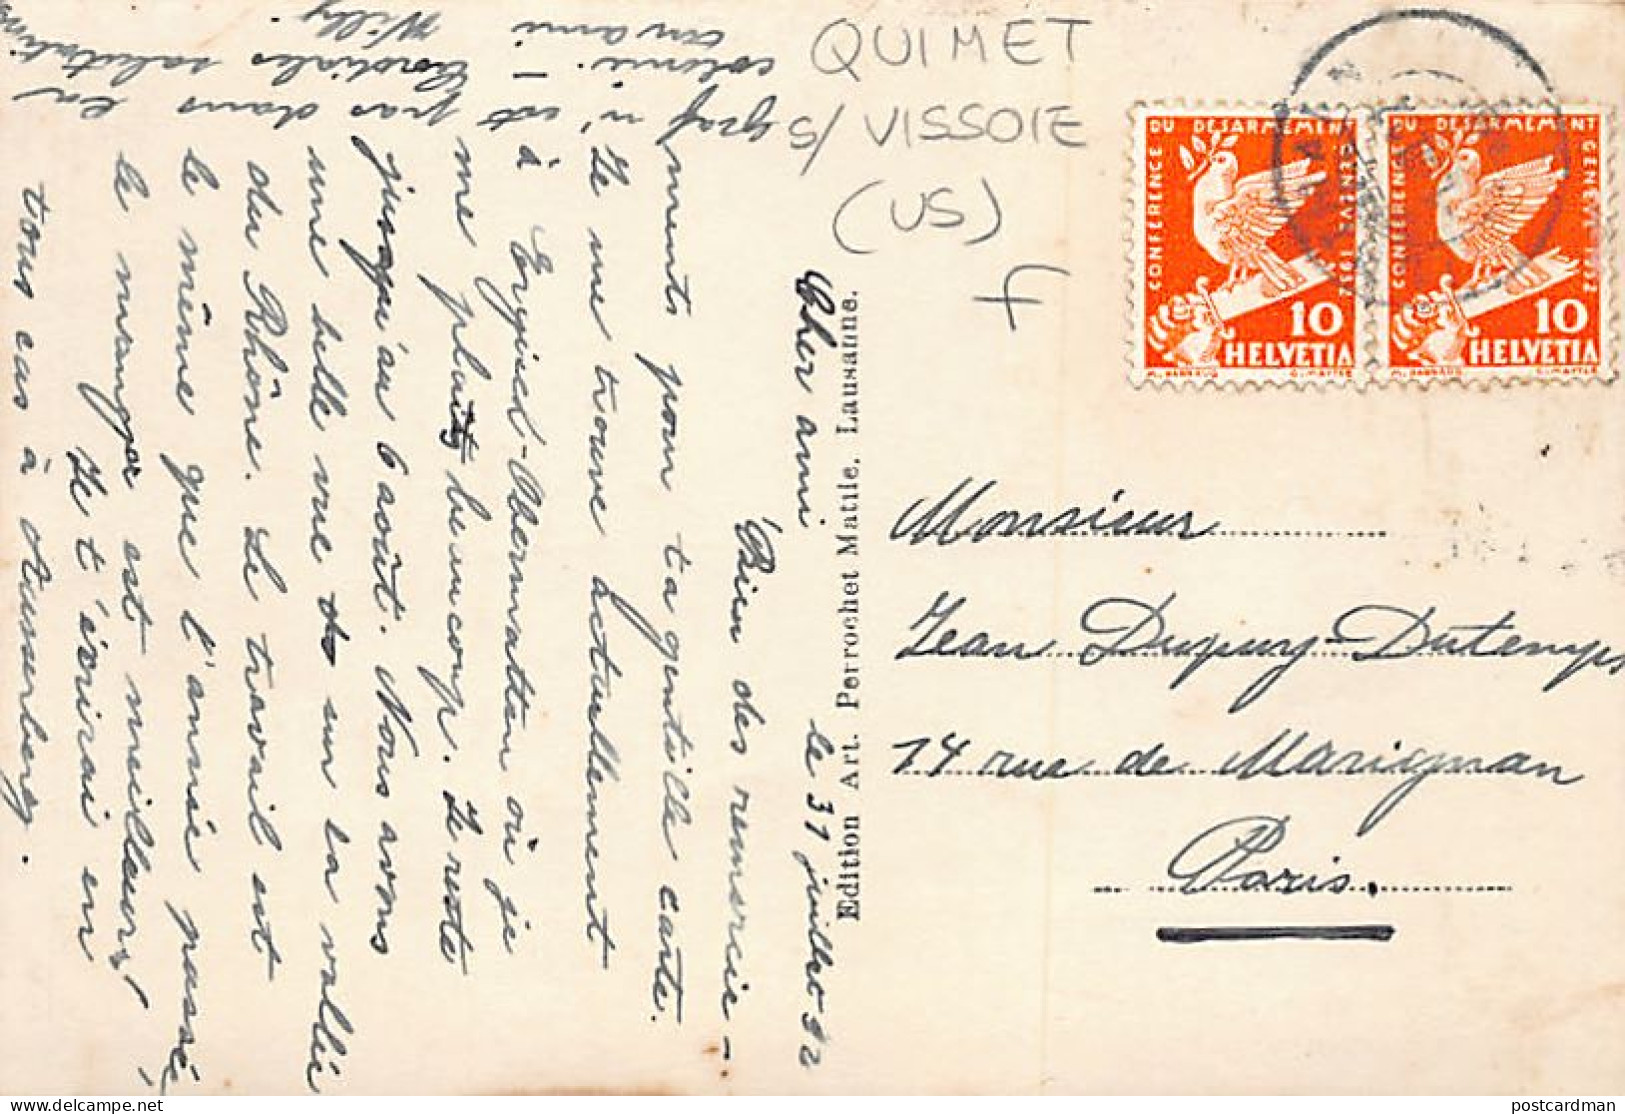 QUIMET
S/ VISSOIE
(VS)
CONFERENCE DU DESARMEMENT GENEVE 1932
10
HELVETIA
CONFERENCE DU DESARMEMENT GENEVE 1932
10
HELVETIA
le 31 juillet 32
Cher ami
Bien des remercie-
ments pour ta gentille carte.
Je me trouve actuellement
à Ergisch-Obermatten où je
me plais beaucoup. Je reste
jusqu'au 6 août. Nous avons
une belle vue sur la vallée
du Rhône. Le travail est
le même que l'année passée,
le manger est meilleur!
Je t'écrirai en
tous cas à
Graf n'est pas dans
colonie. – Cordiales salutations
Willy
Edition Art. Perrochet Matile, Lausanne.
Monsieur
Jean Dupuy-Dutemps
14 rue de Marignan
Paris.
postcardman